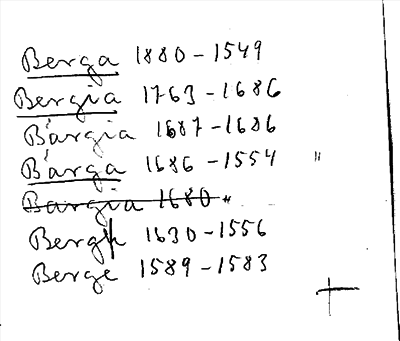 Berga 1880-1549
Bergia 1763-1686
Bärgia 1687-1686
Bärga 1686-1554 "
Bargia 1680 "
Bergh 1630-1556
Berge 1589-1583